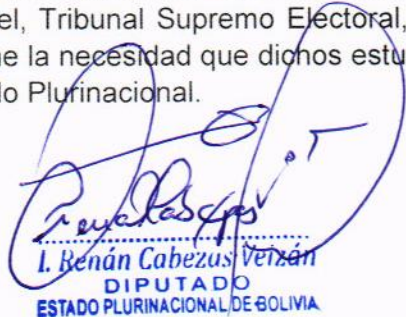 el, Tribunal Supremo Electoral,
ne la necesidad que dichos estu
do Plurinacional.
I. Renán Cabezas Veizán
DIPUTADO
ESTADO PLURINACIONAL DE BOLIVIA